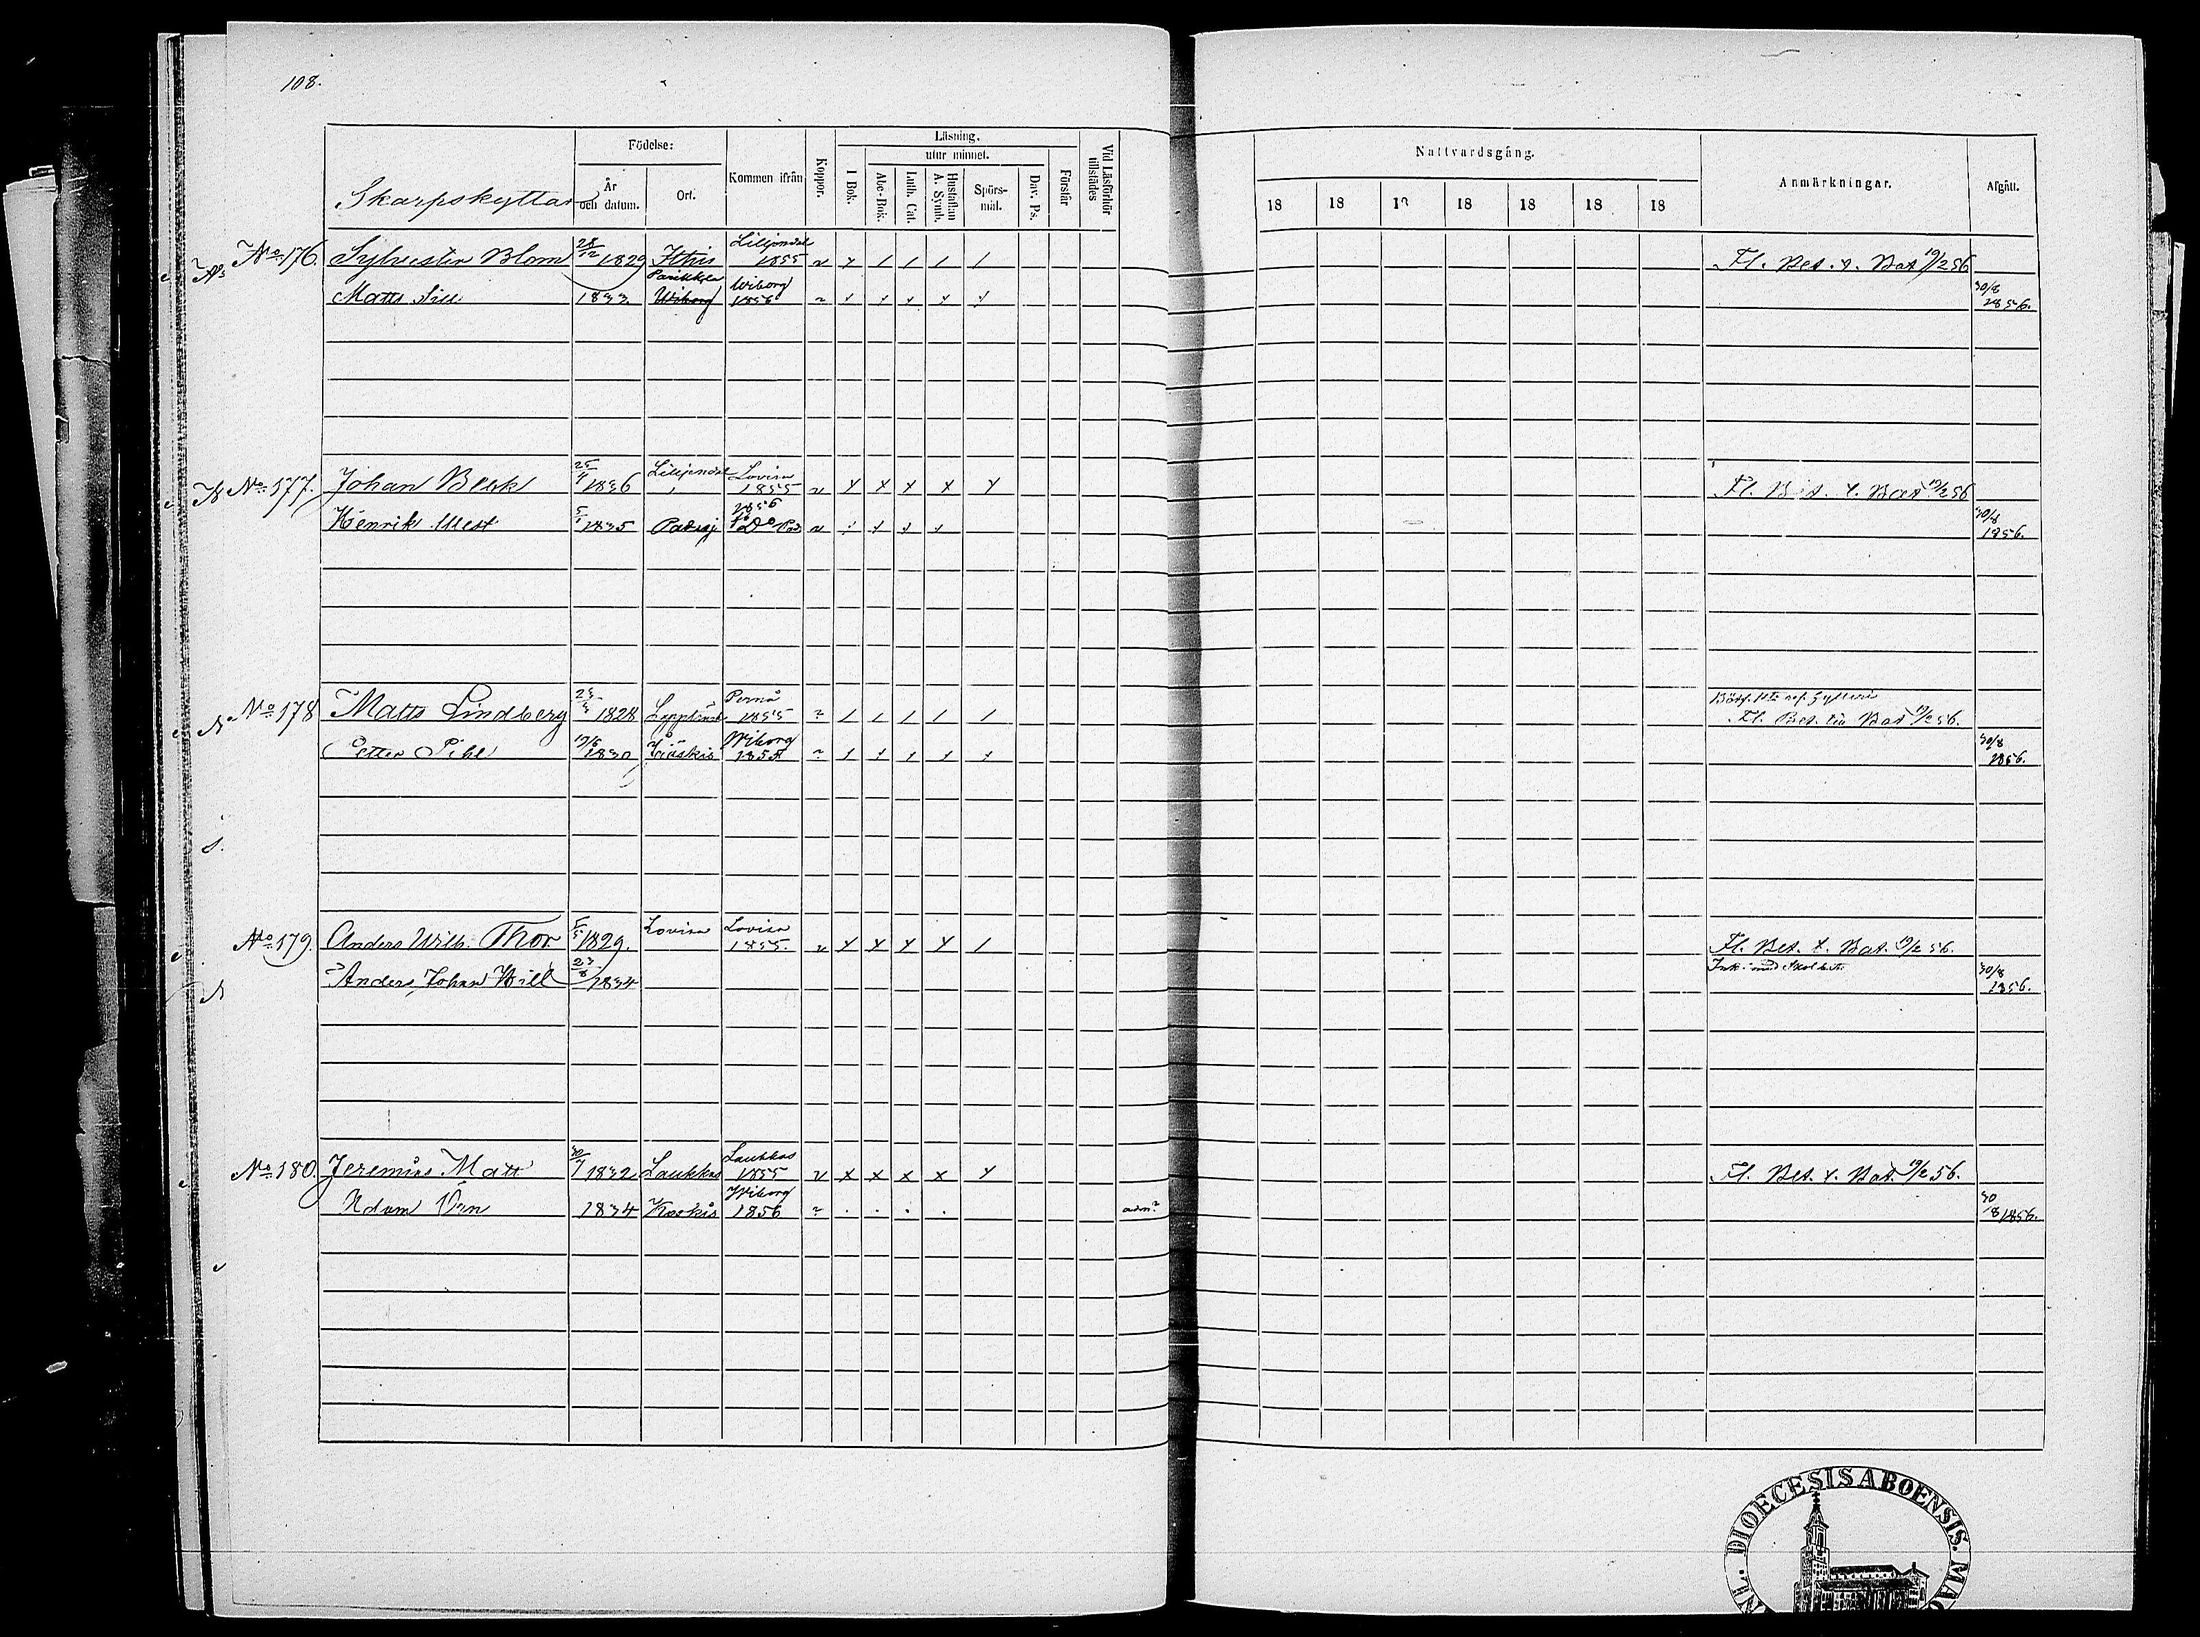 108.
Skarpskyttar
Födelse:
År och datum.
Ort.
Kommen ifrån
Koppor.
Läsning.
utur minnet.
I Bok.
Abc-Bok.
Luth. Cat.
Hustaflan A. Symb.
Spörs-mål.
Dav. Ps.
Förstår
Vid Läsförhör tillstädes
Nattvardsgång.
18 18 18 18 18 18 18
Anmärkningar.
Afgått.
No 176. Sylvester Blom 28/12 1829 Ithis Liljendal 1855 Fl. Bet. t. Bat 19/2 56
Matts Sill 1833 Parikkala Wiborg Wiborg 1856 30/8 1856.
No 177. Johan Blek 25/4 1836 Liljendal Lovisa 1855 Fl. Bet. t. Bat 19/2 56
Henrik West 5/1 1835 Padasj 1856 Do 30/8 1856.
No 178 Matts Lindberg 1828 Lappträsk Perno 1855 Fl. Bet. till Bat 19/2 56.
Petter Pihl 19/6 1830 Jääskis Wiborg 1855 30/8 1856.
No 179. Anders Wilh. Thor 5/5 1829. Lovisa Lovisa 1855. Fl. Bet. t. Bat. 19/2 56.
Anders Johan Will 23/8 1834 30/8 1856.
No 180. Jeremias Matt 30/7 1832 Laukkas Laukkas 1855 Fl. Bet. t. Bat. 19/2 56.
Adam Örn 1834 Koskis Wiborg 1856 adm? 30/8 1856.
DIOECESIS ABOENSIS.